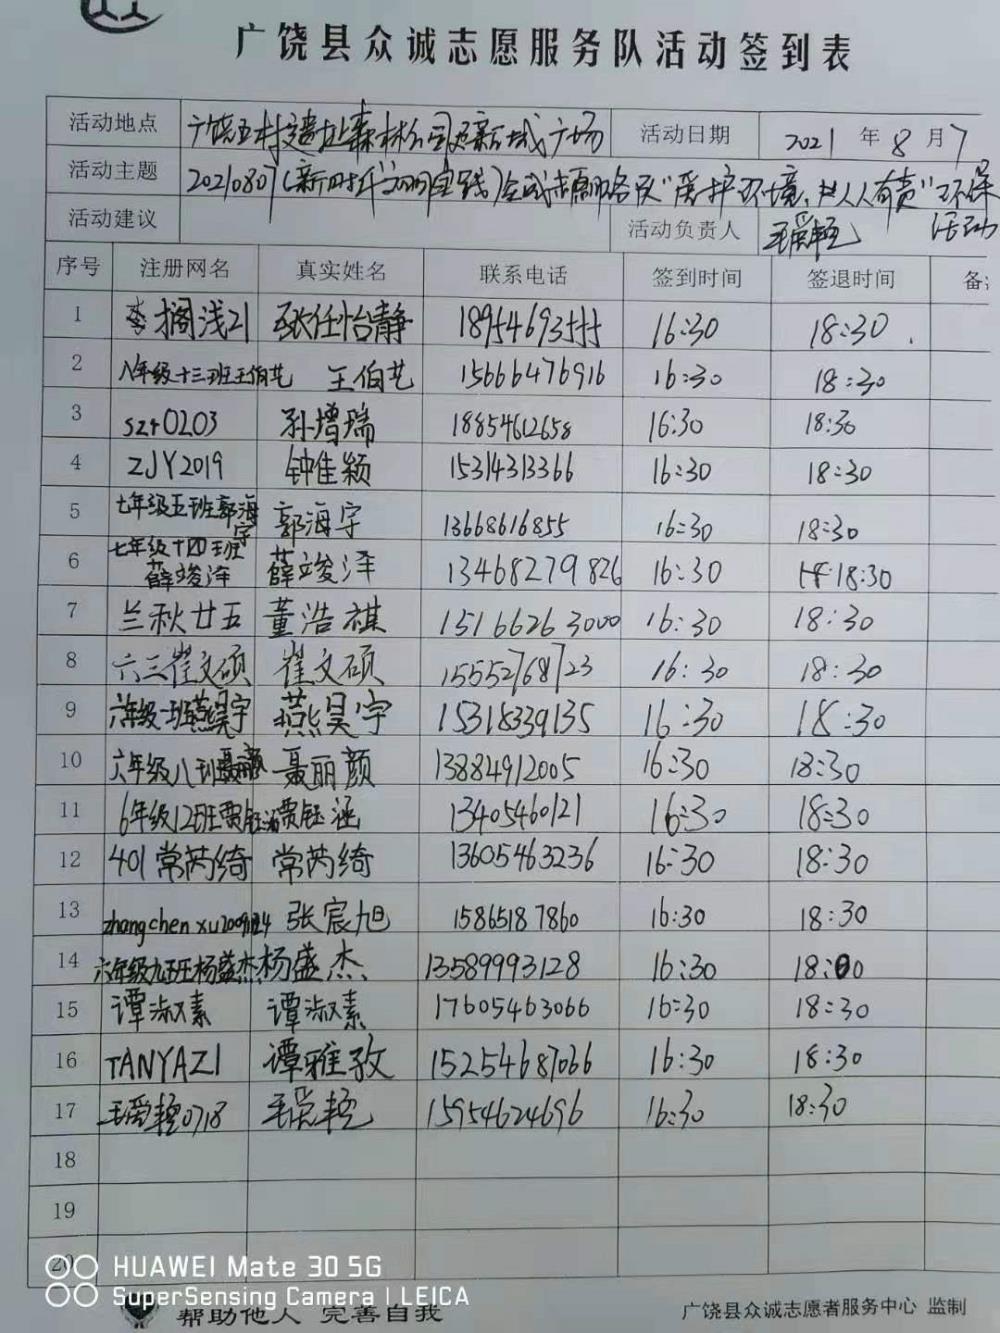 广饶县众诚志愿服务队活动签到表
活动地点 广饶五村遗址森林公园及新城广场 活动日期 2021 年 8 月 7
活动主题 20210807(新时代文明实践)全城志愿服务队“爱护环境,人人有责”环保
活动建议 活动负责人 王爱艳 活动
序号 注册网名 真实姓名 联系电话 签到时间 签退时间 备
1 搁浅21 张任怡静 18954693555 16:30 18:30
2 八年级十三班王伯艺 王伯艺 15666476916 16:30 18:30
3 szr0203 孙增瑞 18854612658 16:30 18:30
4 ZJY2019 钟佳颖 15314313366 16:30 18:30
5 七年级五班郭海宇 郭海宇 13668616855 16:30 18:30
6 七年级十四班薛竣泽 薛竣泽 13468279826 16:30 18:30
7 兰秋廿五 董浩祺 15166263000 16:30 18:30
8 六三崔文硕 崔文硕 15552768723 16:30 18:30
9 六年级一班燕昊宇 燕昊宇 15318339135 16:30 18:30
10 六年级八班聂丽颜 聂丽颜 13884912005 16:30 18:30
11 6年级12班贾钰涵 贾钰涵 13405460121 16:30 18:30
12 401常芮绮 常芮绮 13605463236 16:30 18:30
13 zhangchenxu20091124 张宸旭 15865187860 16:30 18:30
14 六年级九班杨盛杰 杨盛杰 13589993128 16:30 18:00
15 谭淑素 谭淑素 17605463066 16:30 18:30
16 TANYAZI 谭雅孜 15254687066 16:30 18:30
17 王爱艳0718 王爱艳 15954624696 16:30 18:30
18
19
20
HUAWEI Mate 30 5G
SuperSensing Camera | LEICA
帮助他人 完善自我 广饶县众诚志愿者服务中心 监制